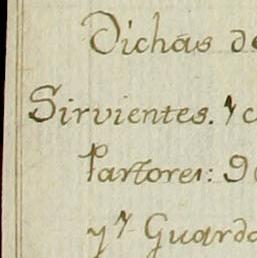 Dichas de
Sirvientes. y c
Pastores: 90
y.n Guarda